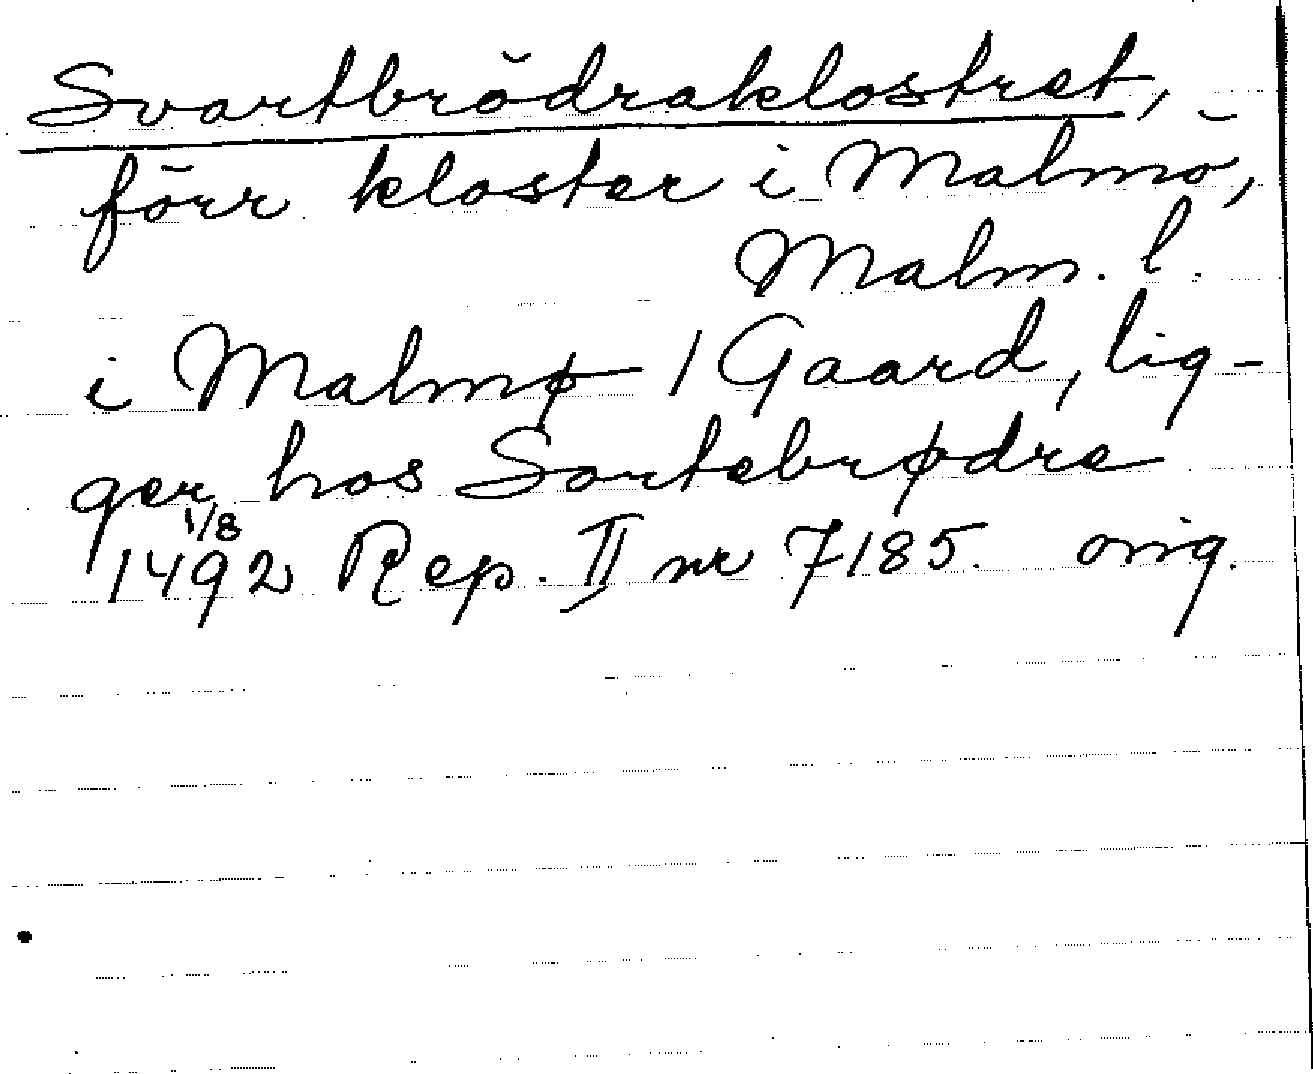 Svartbrödraklostret,
förr kloster i Malmö,
Malm. l.
i Malmø 1 Gaard, lig-
ger hos Sortebrødre
1/8
1492 Rep. II nr 7185. orig.